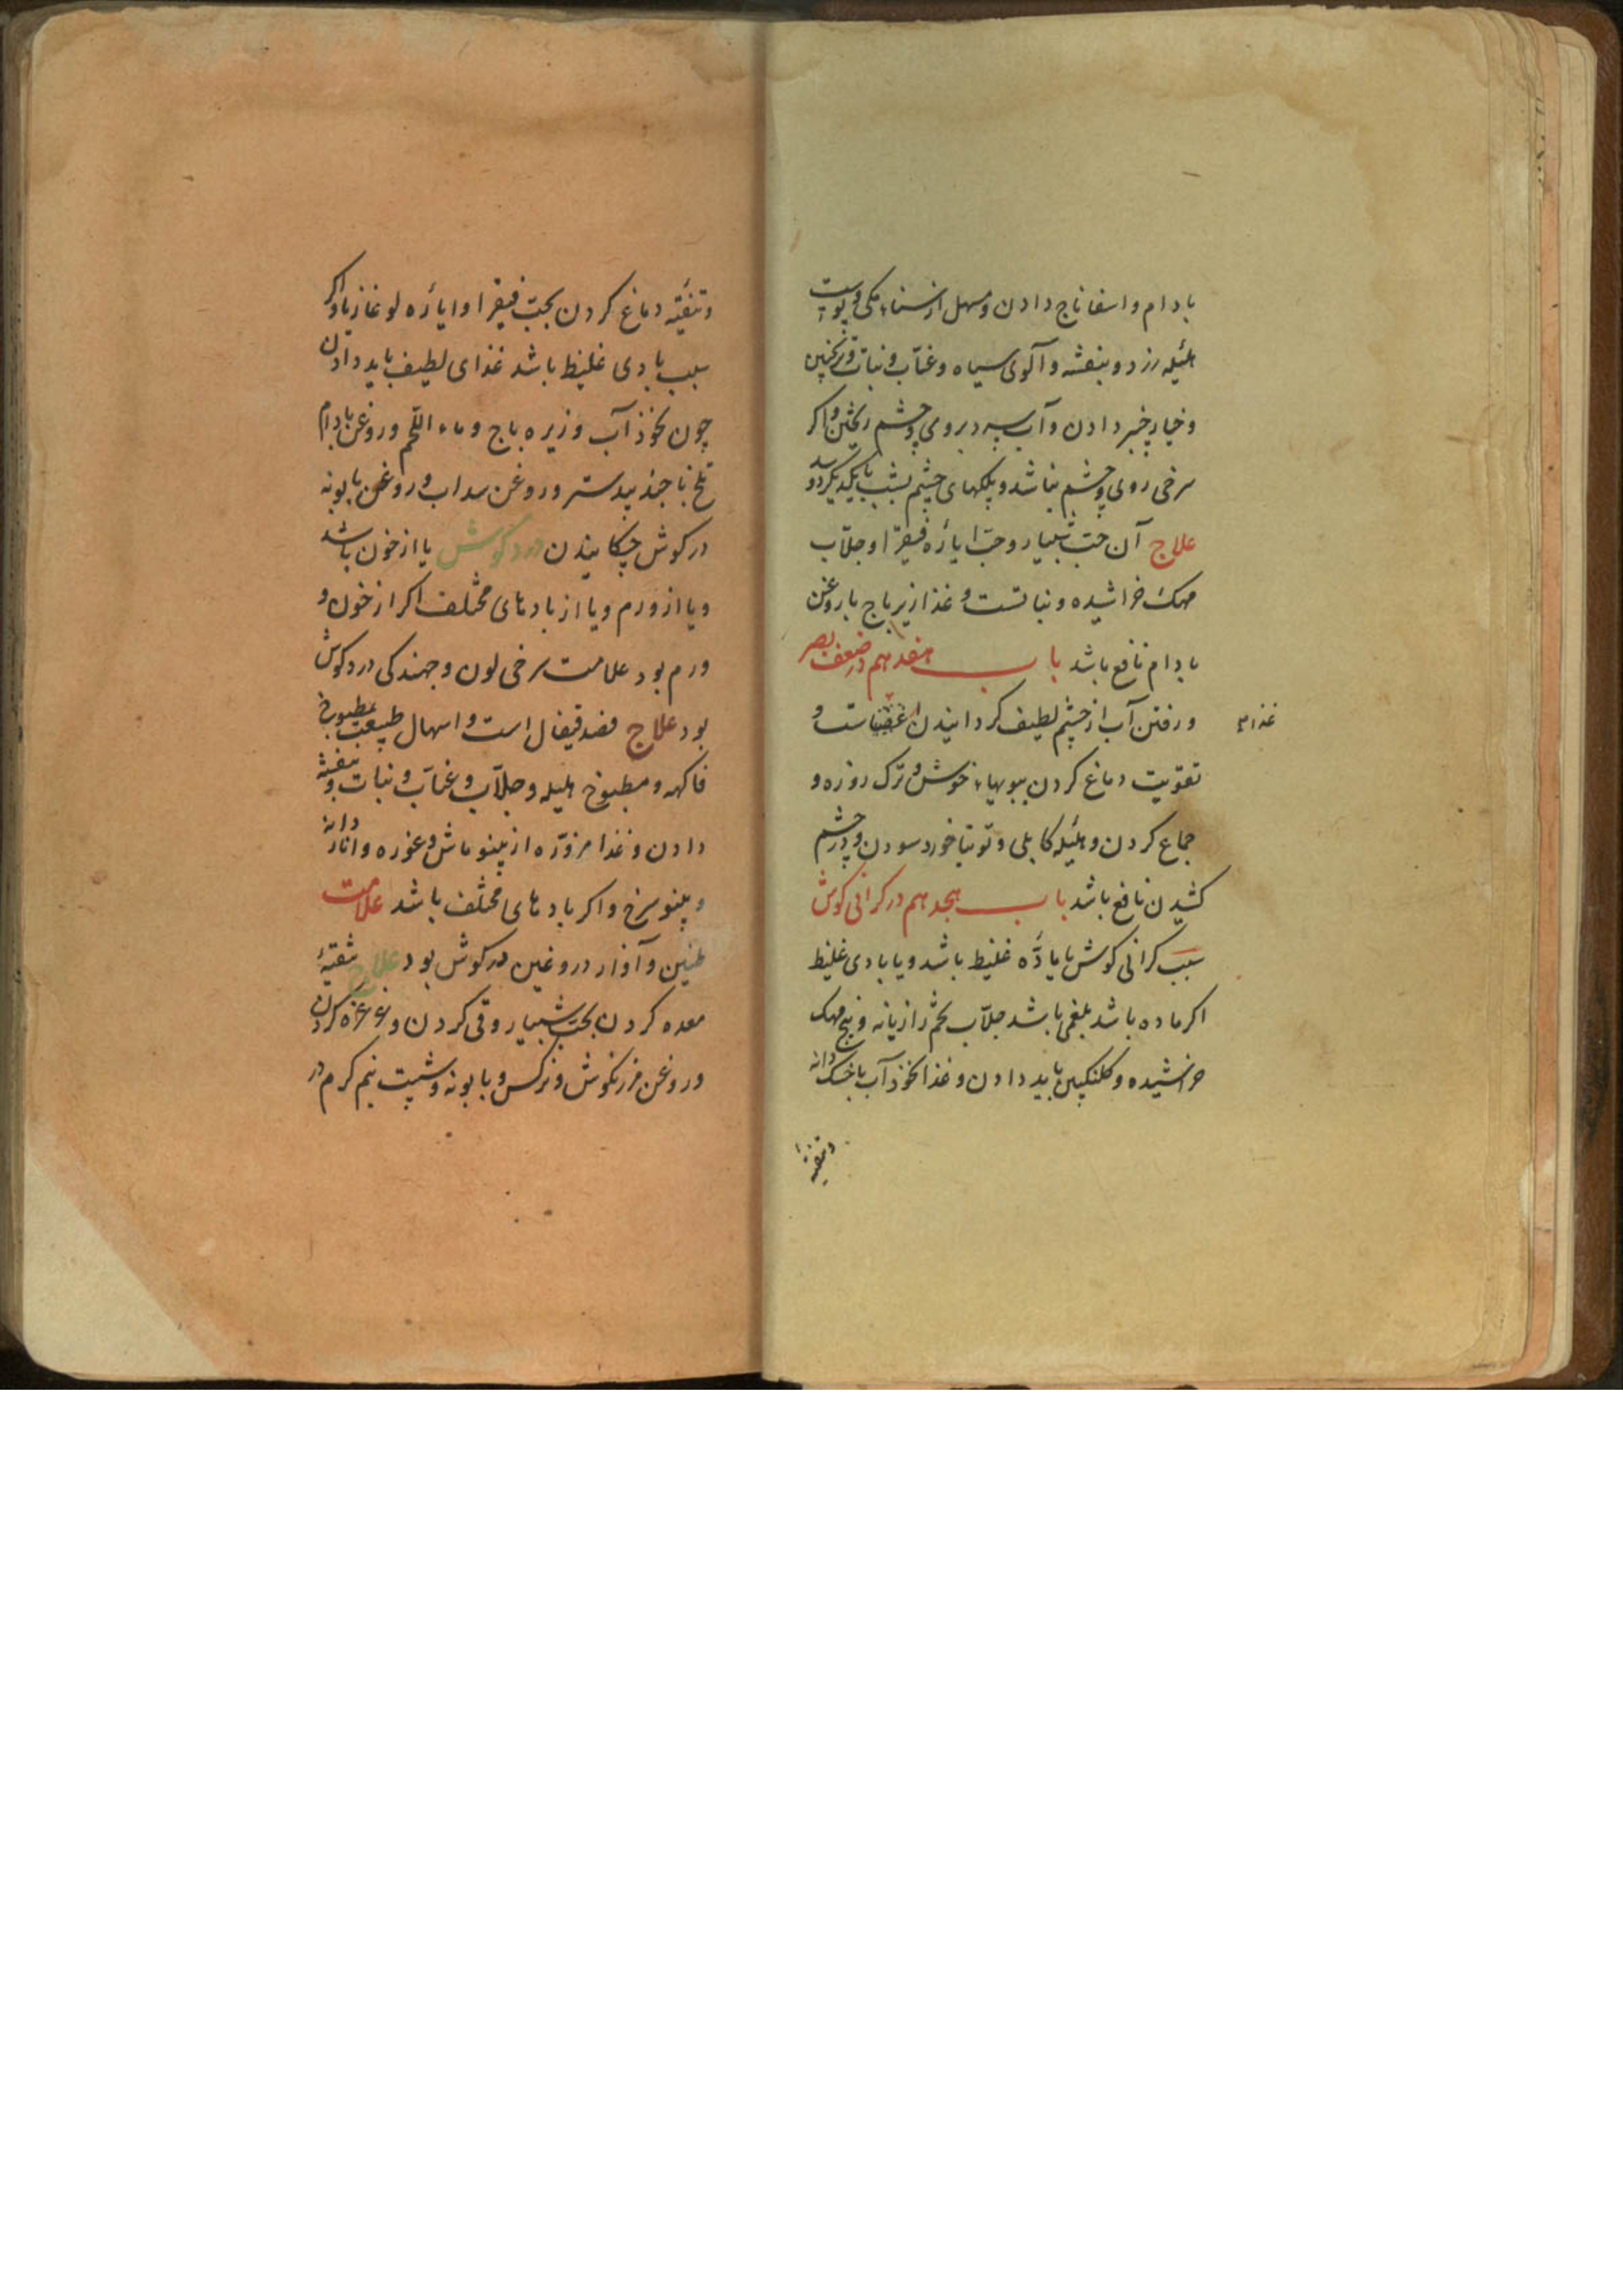 بادام و اسفاناج دادن و مسهل از سناء مکی و پوست
هلیله زرد و بنفشه و آلوی سیاه و عناب و نبات و ترنجبین
و خیارچنبر دادن و آب سرد بروی و چشم ریختن و اکر
سرخی روی و چشم نباشد و پلکهای چشم بشب بایکدیکر دوسد
علاج آن حب شبیار و حب ایاره فیقرا و جلاب
مهک خراشیده و نباتست و غذا زیرباج با روغن
بادام نافع باشد باب هفدهم در ضعف بصر
و رفتن آب از چشم لطیف کردانیدن است و
غذا
تقویت دماغ کردن ببویهاء خوش و ترک روزه و
جماع کردن و هلیله کابلی و توتیا خورد سودن و در چشم
کشیدن نافع باشد باب هجدهم در کرانی کوش
سبب کرانی کوش یا مادّه غلیظ باشد و یا بادی غلیظ
اکر ماده باشد بلغمی باشد جلاب تخم رازیانه و بیخ مهک
خراشیده و کلنکبین باید دادن و غذا نخودآب با خسک دانه
و تنقیه
و تنقیه دماغ کردن بحب فیقرا و ایاره لوغازیا و اکر
سبب بادی غلیظ باشد غذای لطیف باید دادن
چون نخودآب و زیره باج و ماء اللحم و روغن بادام
تلخ با جندبیدستر و روغن سداب و روغن بابونه
در کوش چکانیدن درد کوش یا از خون باشد
و یا از ورم و یا از بادهای مختلف اکر از خون و
ورم بود علامت سرخی لون و جهندکی درد کوش
بود علاج فصد قیفال است و اسهال طبیعت بمطبوخ
فاکهه و مطبوخ هلیله و جلاب و عناب و نبات و بنفشه
دادن و غذا مزوّره از پینو ماش و غوره و انار دانه
و پینو سرخ و اکر بادهای مختلف باشد علامت
طنین و آواز دروغین در کوش بود علاج تنقیه
معده کردن بحب شبیار و قی کردن و غرغره کردن
و روغن مرزنکوش و نرکس و بابونه و شبت نیم کرم در